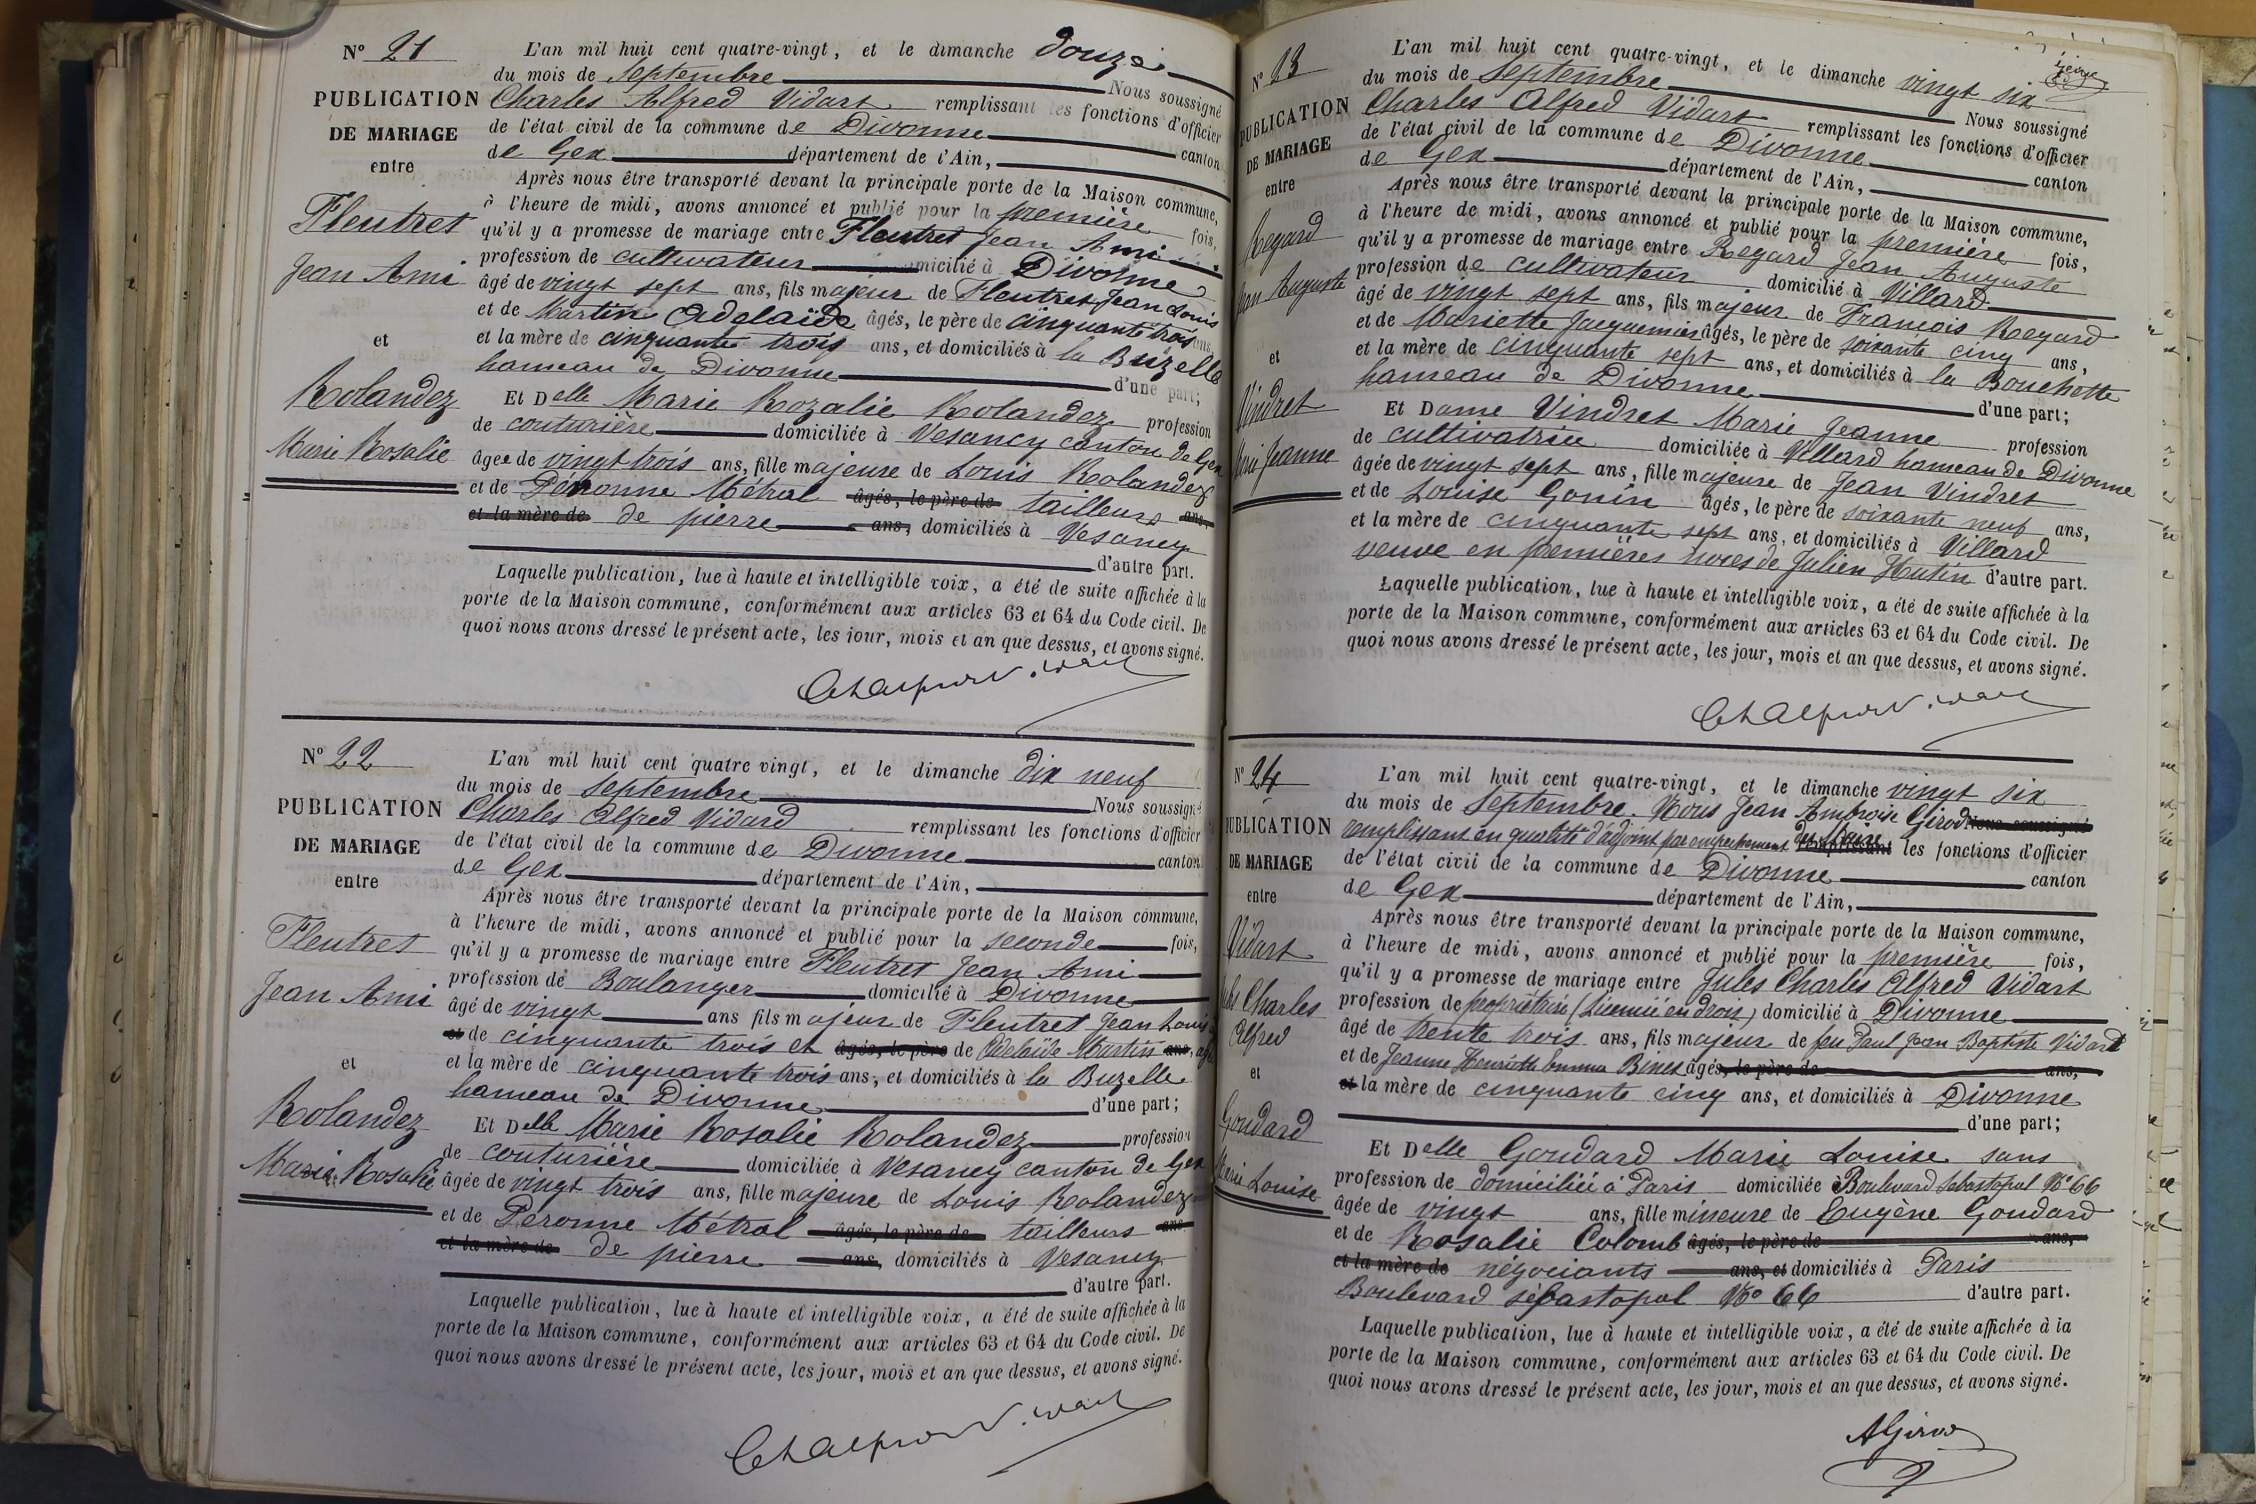 Nº 21
PUBLICATION
DE MARIAGE
entre
Fleutret
Jean Ami
et
Rolandez
Marie Rosalie
L'an mil huit cent quatre-vingt, et le dimanche douze
du mois de Septembre Nous soussigné
Charles Alfred Vidart remplissant les fonctions d'officier
de l'état civil de la commune de Divonne canton
de Gex département de l'Ain,
Après nous être transporté devant la principale porte de la Maison commune,
à l'heure de midi, avons annoncé et publié pour la première fois,
qu'il y a promesse de mariage entre Fleutret Jean Ami
profession de cultivateur domicilié à Divonne
âgé de vingt sept ans, fils majeur de Fleutret Jean Louis
et de Martin Adelaïde âgés, le père de cinquante trois ans,
et la mère de cinquante trois ans, et domiciliés à la Buzelle
hameau de Divonne d'une part;
Et Delle Marie Rozalie Rolandez profession
de couturière domiciliée à Vesancy canton de Gex
âgée de vingt trois ans, fille majeure de Louis Rolandez
et de Péronne Métral âgés, le père de tailleurs ans,
et la mère de de pierre ans, domiciliés à Vesancy
d'autre part.
Laquelle publication, lue à haute et intelligible voix, a été de suite affichée à la
porte de la Maison commune, conformément aux articles 63 et 64 du Code civil. De
quoi nous avons dressé le présent acte, les jour, mois et an que dessus, et avons signé.
Nº 22
PUBLICATION
DE MARIAGE
entre
Fleutret
Jean Ami
et
Rolandez
Marie Rosalie
L'an mil huit cent quatre vingt, et le dimanche dix neuf
du mois de Septembre Nous soussigné
Charles Alfred Vidard remplissant les fonctions d'officier
de l'état civil de la commune de Divonne canton
de Gex département de l'Ain,
Après nous être transporté devant la principale porte de la Maison commune,
à l'heure de midi, avons annoncé et publié pour la seconde fois,
qu'il y a promesse de mariage entre Fleutret Jean Ami
profession de Boulanger domicilié à Divonne
âgé de vingt ans fils majeur de Fleutret Jean Louis
et de cinquante trois et âgés, le père de Adelaïde Martin ans,
et la mère de cinquante trois ans, et domiciliés à la Buzelle
hameau de Divonne d'une part;
Et Delle Marie Rosalie Rolandez profession
de couturière domiciliée à Vesancy canton de Gex
âgée de vingt trois ans, fille majeure de Louis Rolandez
et de Péronne Métral âgés, le père de tailleurs ans
et la mère de de pierre ans, domiciliés à Vesancy
d'autre part.
Laquelle publication, lue à haute et intelligible voix, a été de suite affichée à la
porte de la Maison commune, conformément aux articles 63 et 64 du Code civil. De
quoi nous avons dressé le présent acte, les jour, mois et an que dessus, et avons signé.
Nº 23
PUBLICATION
DE MARIAGE
entre
Regard
Jean Auguste
et
Vindret
Marie Jeanne
L'an mil huit cent quatre-vingt, et le dimanche vingt six
du mois de Septembre Nous soussigné
Charles Alfred Vidart remplissant les fonctions d'officier
de l'état civil de la commune de Divonne canton
de Gex département de l'Ain,
Après nous être transporté devant la principale porte de la Maison commune,
à l'heure de midi, avons annoncé et publié pour la première fois,
qu'il y a promesse de mariage entre Regard Jean Auguste
profession de cultivateur domicilié à Villard
âgé de vingt sept ans, fils majeur de François Regard
et de Mariette Jacquemier âgés, le père de soixante cinq ans,
et la mère de cinquante sept ans, et domiciliés à la Bouchotte
hameau de Divonne d'une part;
Et Dame Vindret Marie Jeanne profession
de cultivatrice domiciliée à Villard hameau de Divonne
âgée de vingt sept ans, fille majeure de Jean Vindret
et de Louise Gonin âgés, le père de soixante neuf ans,
et la mère de cinquante sept ans, et domiciliés à Villard
veuve en premières noces de Julien Hutin d'autre part.
Laquelle publication, lue à haute et intelligible voix, a été de suite affichée à la
porte de la Maison commune, conformément aux articles 63 et 64 du Code civil. De
quoi nous avons dressé le présent acte, les jour, mois et an que dessus, et avons signé.
Nº 24
PUBLICATION
DE MARIAGE
entre
Vidart
Jules Charles
Alfred
et
Goudard
Marie Louise
L'an mil huit cent quatre-vingt, et le dimanche vingt six
du mois de Septembre. Nous Jean Ambroise Girod Nous soussigné
remplissant en qualité d'adjoint par empêchement du Maire remplissant les fonctions d'officier
de l'état civil de la commune de Divonne canton
de Gex département de l'Ain,
Après nous être transporté devant la principale porte de la Maison commune,
à l'heure de midi, avons annoncé et publié pour la première fois,
qu'il y a promesse de mariage entre Jules Charles Alfred Vidart
profession de propriétaire (Licencié en droit) domicilié à Divonne
âgé de trente trois ans, fils majeur de feu Paul Jean Baptiste Vidart
et de Jeanne Henriette Emma Binet âgés, le père de ans,
et la mère de cinquante cinq ans, et domiciliés à Divonne
d'une part;
Et Delle Goudard Marie Louise sans
profession de domiciliée à Paris domiciliée Boulevard Sebastopol Nº 66
âgée de vingt ans, fille mineure de Eugène Goudard
et de Rosalie Colomb âgés, le père de ans,
et la mère de négociants ans, et domiciliés à Paris
Boulevard sébastopol Nº 66 d'autre part.
Laquelle publication, lue à haute et intelligible voix, a été de suite affichée à la
porte de la Maison commune, conformément aux articles 63 et 64 du Code civil. De
quoi nous avons dressé le présent acte, les jour, mois et an que dessus, et avons signé.
AGirod